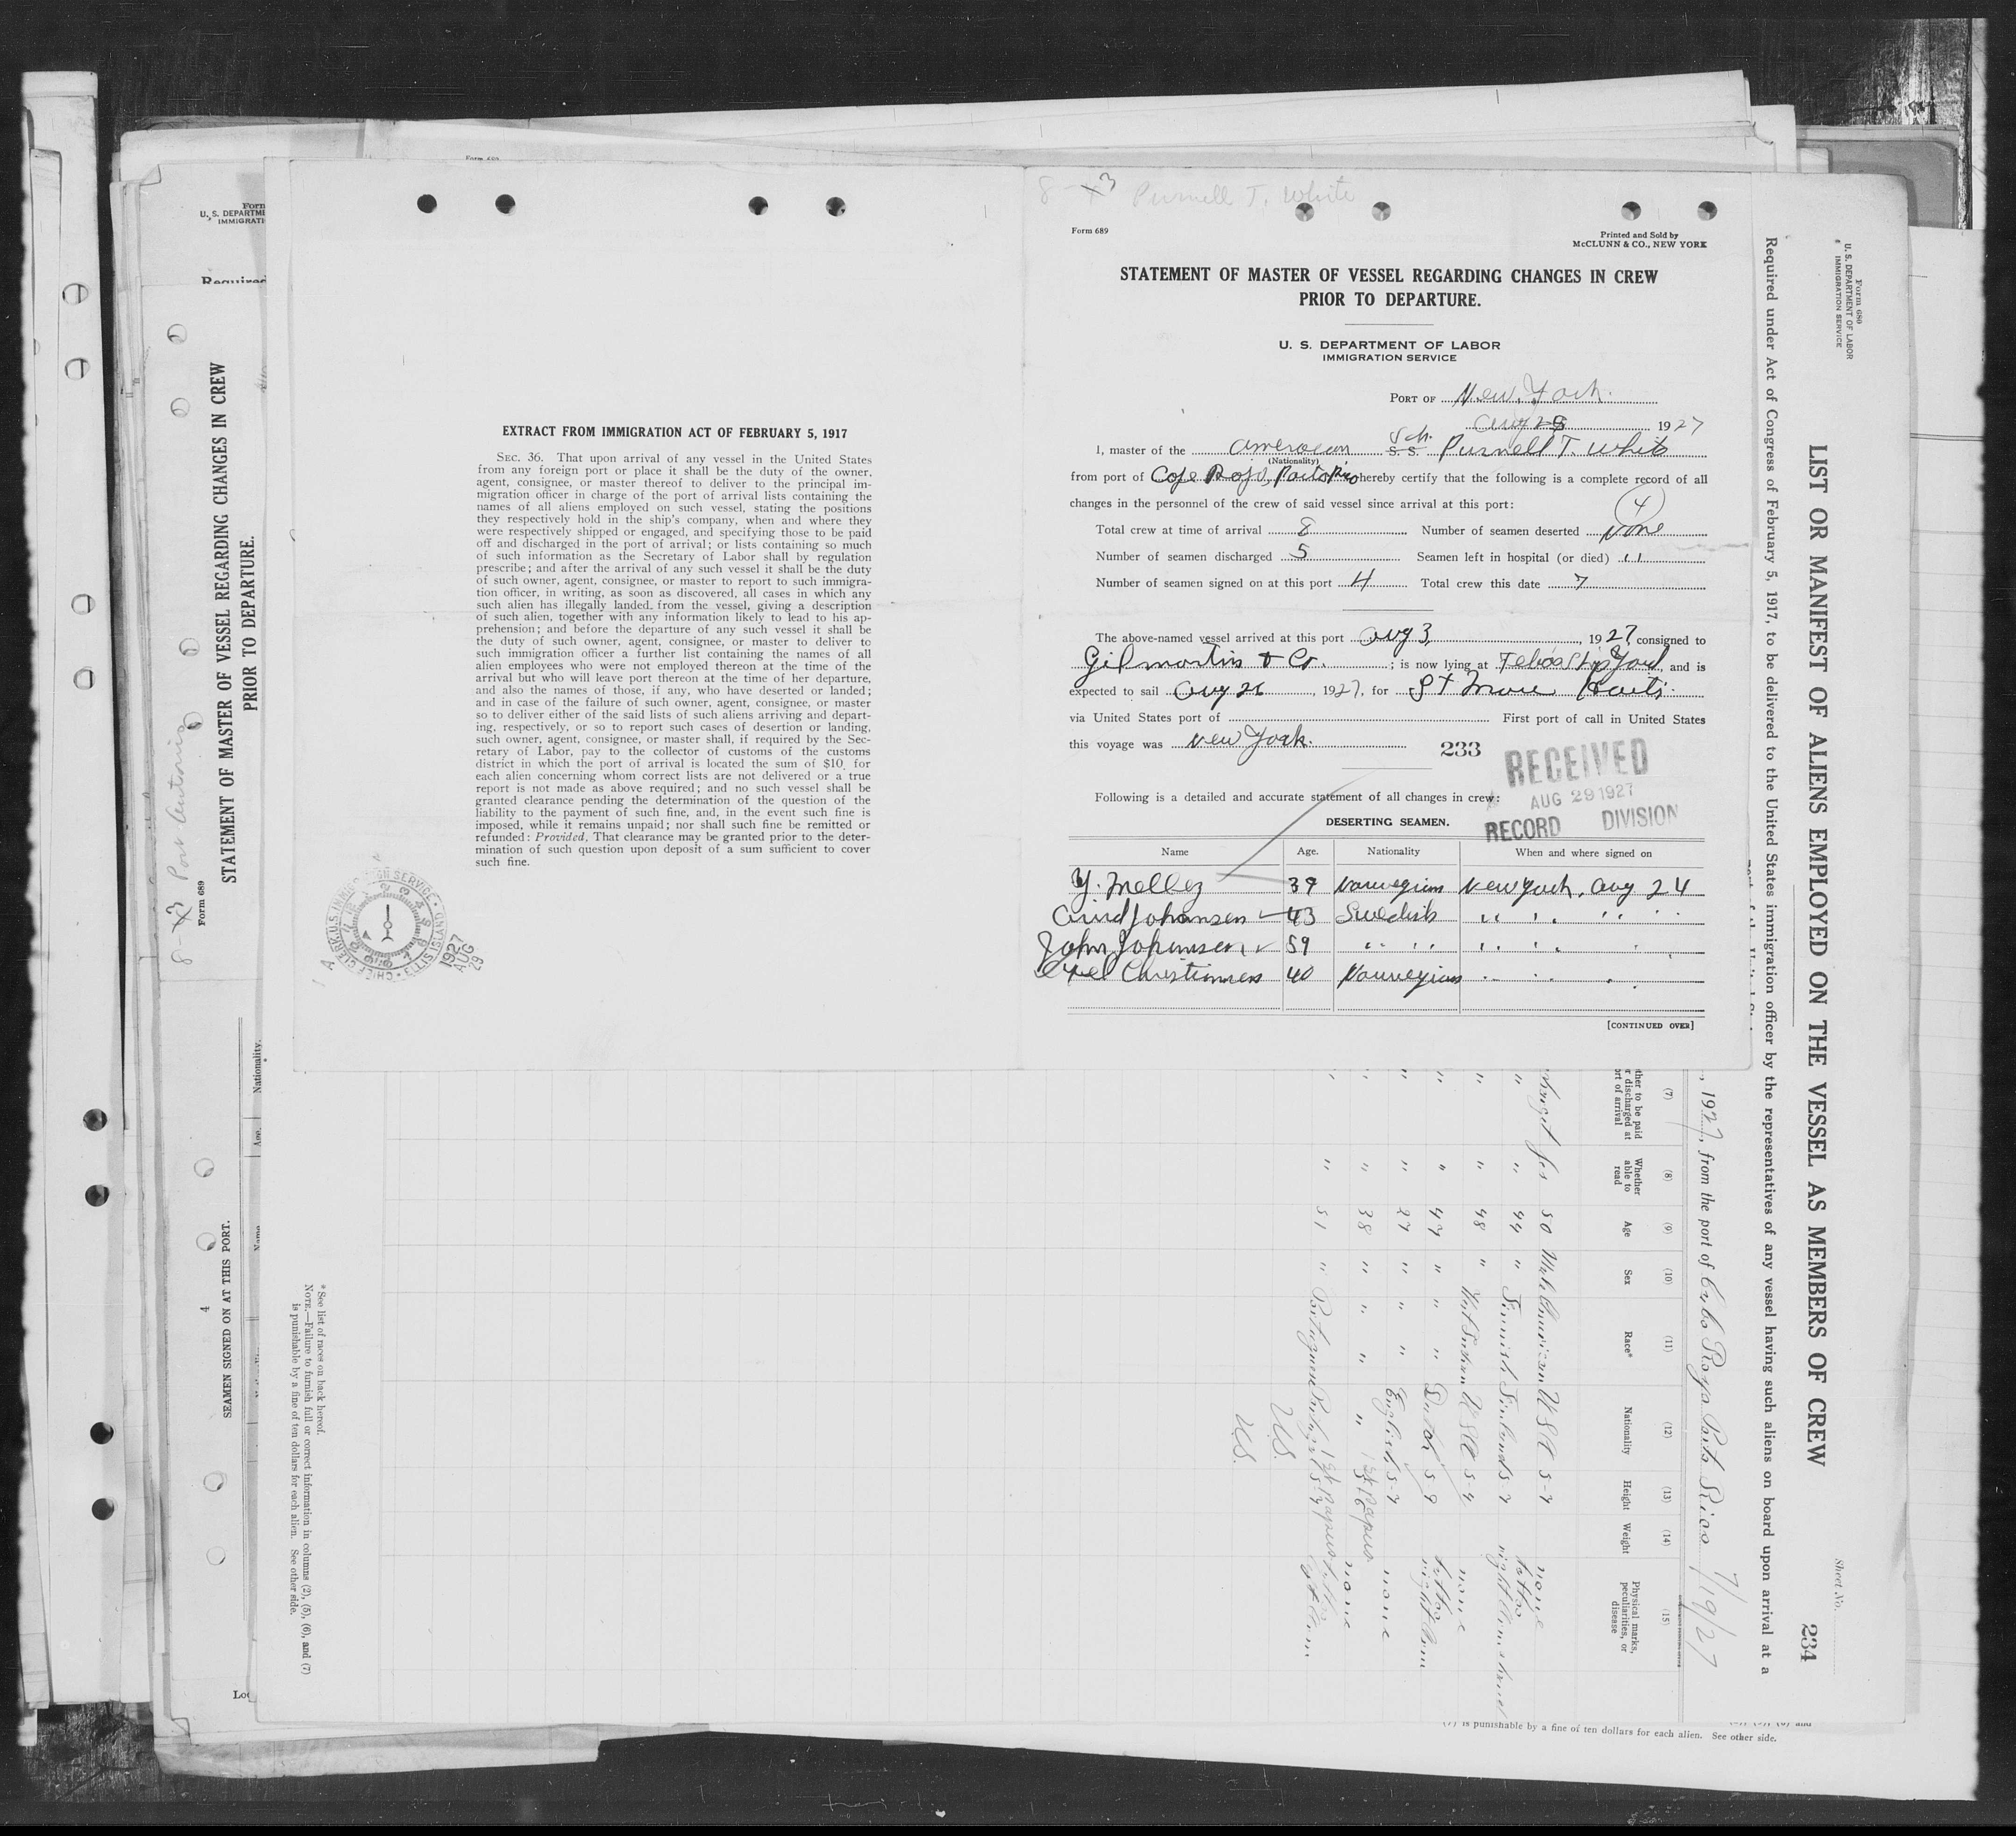 8-3 Purnell T. White
Form 689
Printed and Sold by
McCLUNN & CO., NEW YORK
STATEMENT OF MASTER OF VESSEL REGARDING CHANGES IN CREW
PRIOR TO DEPARTURE.
U. S. DEPARTMENT OF LABOR
IMMIGRATION SERVICE
PORT OF New York.
Aug 1927
I, master of the American Sch. Purnell T. White
(Nationality)
from port of hereby certify that the following is a complete record of all
changes in the personnel of the crew of said vessel since arrival at this port:
4
Total crew at time of arrival 8 Number of seamen deserted None
Number of seamen discharged 5 Seamen left in hospital (or died) "
Number of seamen signed on at this port 4 Total crew this date 7
The above-named vessel arrived at this port Aug 3, 1927 consigned to
Gilmartin & Co. ; is now lying at Tebos Yard, and is
expected to sail Aug 26, 1927, for St Haiti.
via United States port of First port of call in United States
this voyage was New York. 233
RECEIVED
AUG 29 1927
RECORD DIVISION
Following is a detailed and accurate statement of all changes in crew:
DESERTING SEAMEN.
Name Age. Nationality When and where signed on
39 Norwegian New York, Aug 24
Johansen 43 Swedish " " " "
John Johansen 59 " " " " "
Christiansen 40 Norwegian " " "
[CONTINUED OVER]
EXTRACT FROM IMMIGRATION ACT OF FEBRUARY 5, 1917
SEC. 36. That upon arrival of any vessel in the United States
from any foreign port or place it shall be the duty of the owner,
agent, consignee, or master thereof to deliver to the principal im-
migration officer in charge of the port of arrival lists containing the
names of all aliens employed on such vessel, stating the positions
they respectively hold in the ship's company, when and where they
were respectively shipped or engaged, and specifying those to be paid
off and discharged in the port of arrival; or lists containing so much
of such information as the Secretary of Labor shall by regulation
prescribe; and after the arrival of any such vessel it shall be the duty
of such owner, agent, consignee, or master to report to such immigra-
tion officer, in writing, as soon as discovered, all cases in which any
such alien has illegally landed from the vessel, giving a description
of such alien, together with any information likely to lead to his ap-
prehension; and before the departure of any such vessel it shall be
the duty of such owner, agent, consignee, or master to deliver to
such immigration officer a further list containing the names of all
alien employees who were not employed thereon at the time of the
arrival but who will leave port thereon at the time of her departure,
and also the names of those, if any, who have deserted or landed;
and in case of the failure of such owner, agent, consignee, or master
so to deliver either of the said lists of such aliens arriving and depart-
ing, respectively, or so to report such cases of desertion or landing,
such owner, agent, consignee, or master shall, if required by the Sec-
retary of Labor, pay to the collector of customs of the customs
district in which the port of arrival is located the sum of $10 for
each alien concerning whom correct lists are not delivered or a true
report is not made as above required; and no such vessel shall be
granted clearance pending the determination of the question of the
liability to the payment of such fine, and, in the event such fine is
imposed, while it remains unpaid; nor shall such fine be remitted or
refunded: Provided, That clearance may be granted prior to the deter-
mination of such question upon deposit of a sum sufficient to cover
such fine.
CHIEF CLERK, U.S. IMMIGRATION SERVICE · ELLIS ISLAND
1927
AUG
29
Form 689
U. S. DEPARTMENT OF LABOR
IMMIGRATION SERVICE
Sheet No.
234
LIST OR MANIFEST OF ALIENS EMPLOYED ON THE VESSEL AS MEMBERS OF CREW
Required under Act of Congress of February 5, 1917, to be delivered to the United States immigration officer by the representatives of any vessel having such aliens on board upon arrival at a
, 1927, from the port of Cabo Rojo Porto Rico 7/19/27
(7) (8) (9) (10) (11) (12) (13) (14) (15)
Whether able to read Age Sex Race* Nationality Height Weight Physical marks, peculiarities, or disease
yes 50 Male American USA 5-7 none
" " 44 " Finnish Finland 5-7 tattoo right
" " 48 " West Indian USA 5-9 none
" " 47 " " Dutch 5 9 tattoo right arm
" " 27 " " " English 5-7 none
" " 38 " " " " 5-6 1st papers none
" " 51 " Portuguese 1st papers 5-7
US.
US.
* See list of races on back hereof.
NOTE.—Failure to furnish full or correct information in columns (2), (5), (6), and (7)
is punishable by a fine of ten dollars for each alien. See other side.
(7) is punishable by a fine of ten dollars for each alien. See other side.
8-3 Port Antonio
Form 689
STATEMENT OF MASTER OF VESSEL REGARDING CHANGES IN CREW
PRIOR TO DEPARTURE.
SEAMEN SIGNED ON AT THIS PORT.
4
Name Age. Nationality.
Form
U. S. DEPARTME
IMMIGRATI
Required